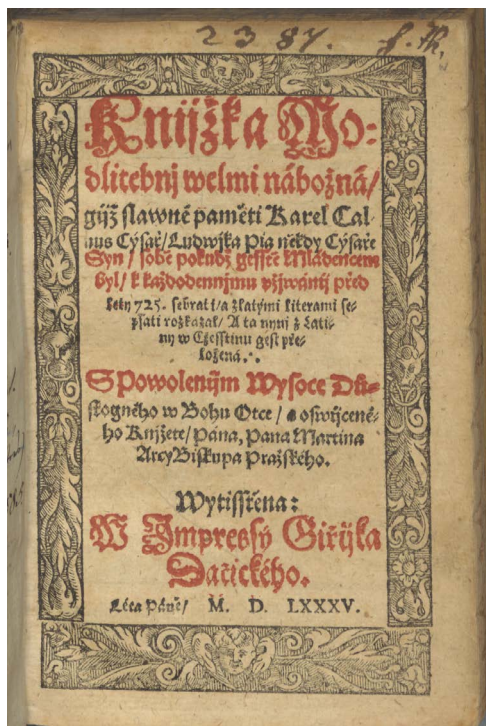 2387. J. Th.
Knijžka Mo-
dlitebnj welmi nábožná/
gijž slawné paměti Karel Cal-
uus Cýsař/ Ludwjka Pia někdy Cýsaře
Syn/ sobě pokudž gesstě Mládencem
byl/ k každodennjmu vžjwánij před
lety 725. sebrati/ a zlatými literami se-
psati rozkázal/ A ta nynj z Lati-
ny w Cžesstinu gest pře-
ložená.
S Powolenijm Wysoce Dů-
stogného w Bohu Otce/ a oswijcené-
ho Knjžete/ Pána, Pana Martina
ArcyBiskupa Pražského.
Wytisstěna:
W Jmpressý Giřijka
Dačického.
Léta Páně/ M. D. LXXXV.